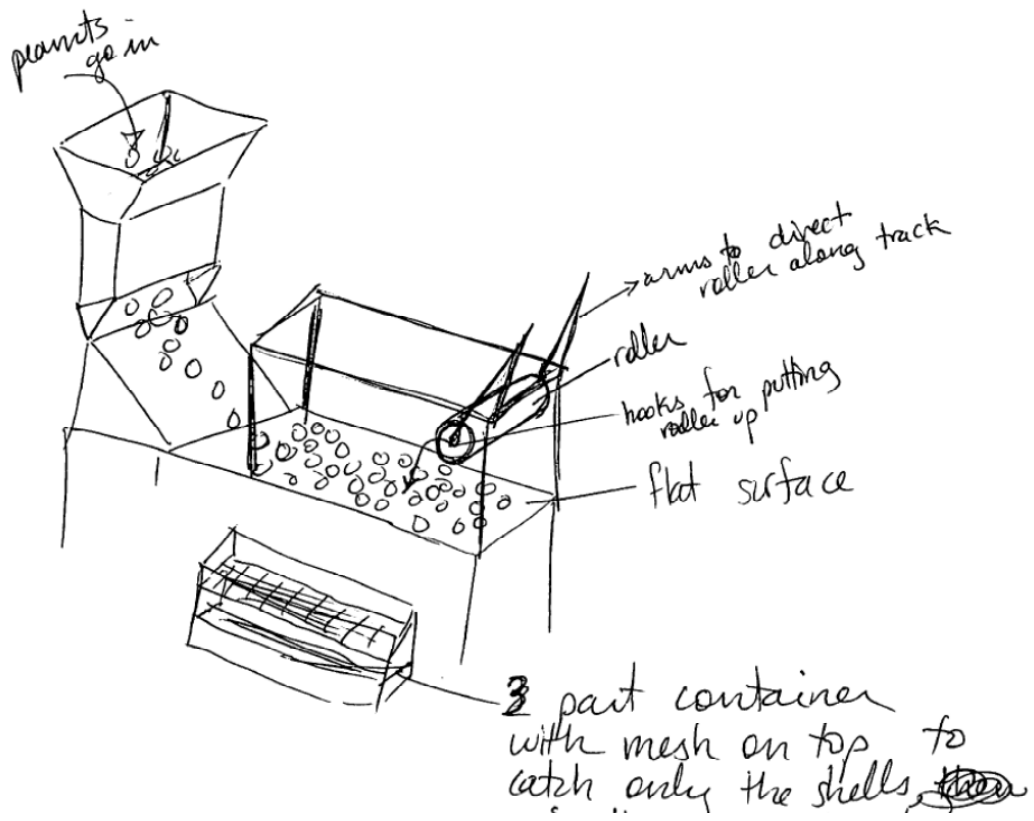 peanuts
go in
arms to direct
roller along track
roller
hooks for putting
roller up
flat surface
3 part container
with mesh on top to
catch only the shells,